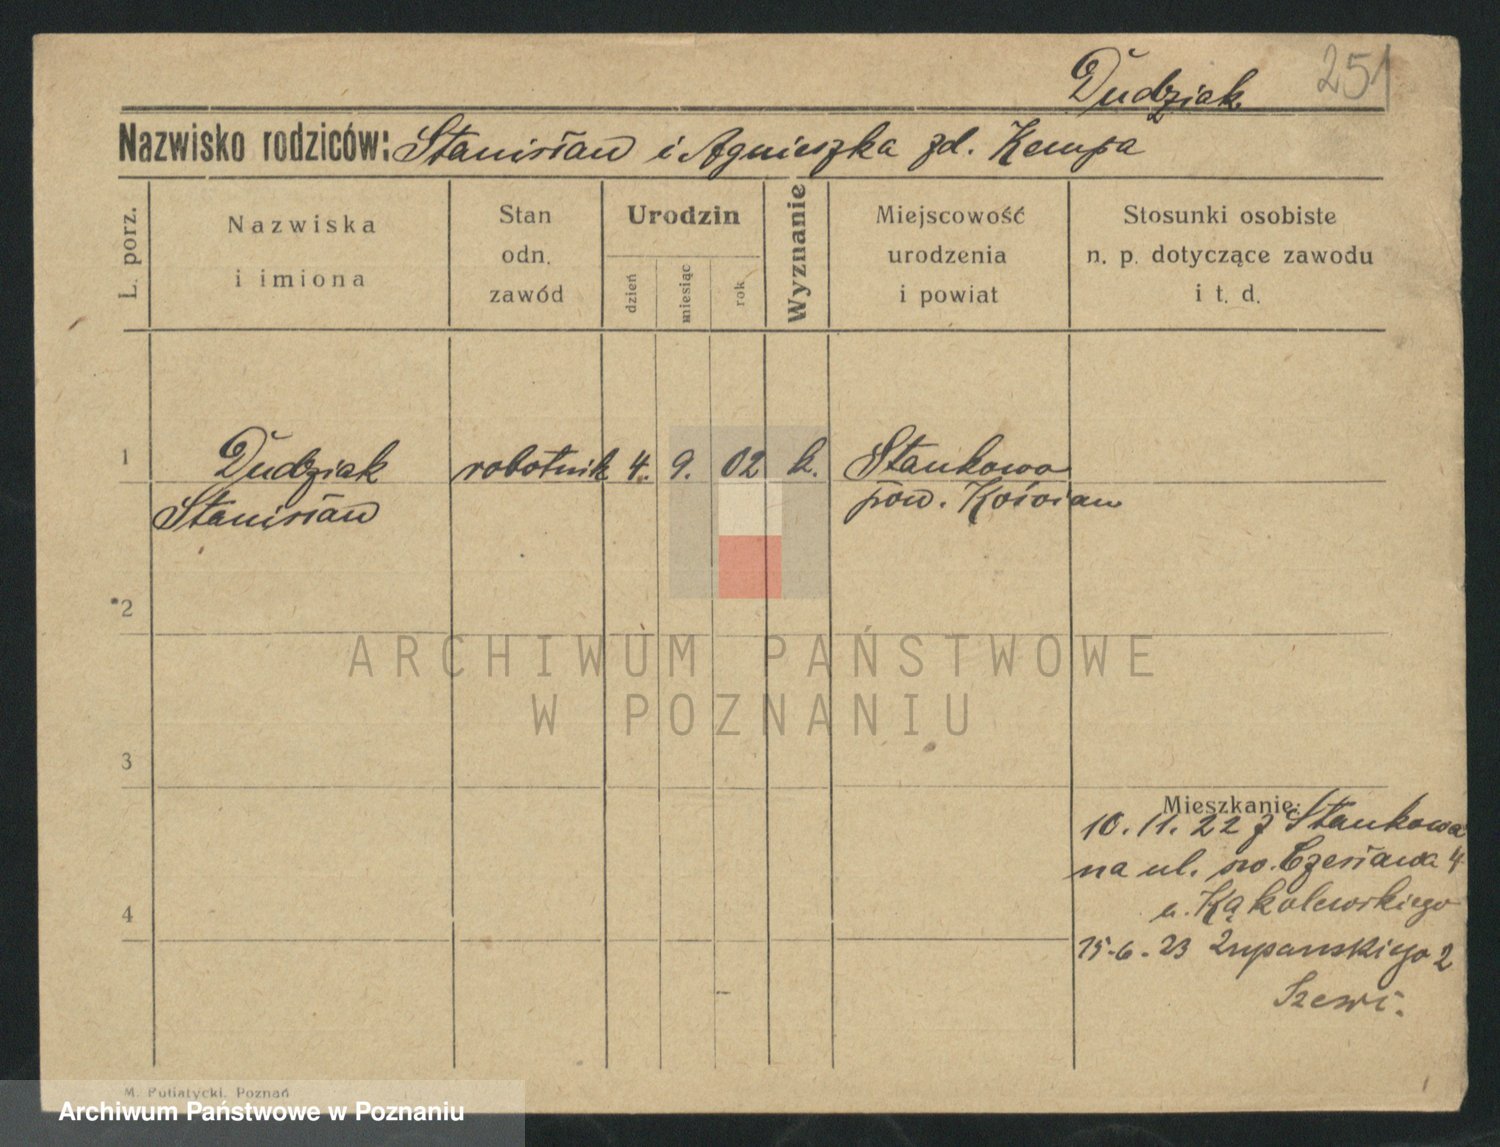 Dudziak 251
Nazwisko rodziców: Stanisław i Agnieszka zd. Kempa
L. porz.
Nazwiska
i imiona
Stan
odn.
zawód
Urodzin
dzień
miesiąc
rok
Wyznanie
Miejscowość
urodzenia
i powiat
Stosunki osobiste
n. p. dotyczące zawodu
i t. d.
1 Dudziak robotnik 4. 9. 02 k. Stankowo
Stanisław pow. Kościan
2
ARCHIWUM PAŃSTWOWE
W POZNANIU
3
Mieszkanie:
10. 11. 22 z Stankowa
na ul. św. Czesława 4
u. Kąkolewskiego
4
15-6-23 Żupańskiego 2
M. Putiatycki, Poznań
Archiwum Państwowe w Poznaniu